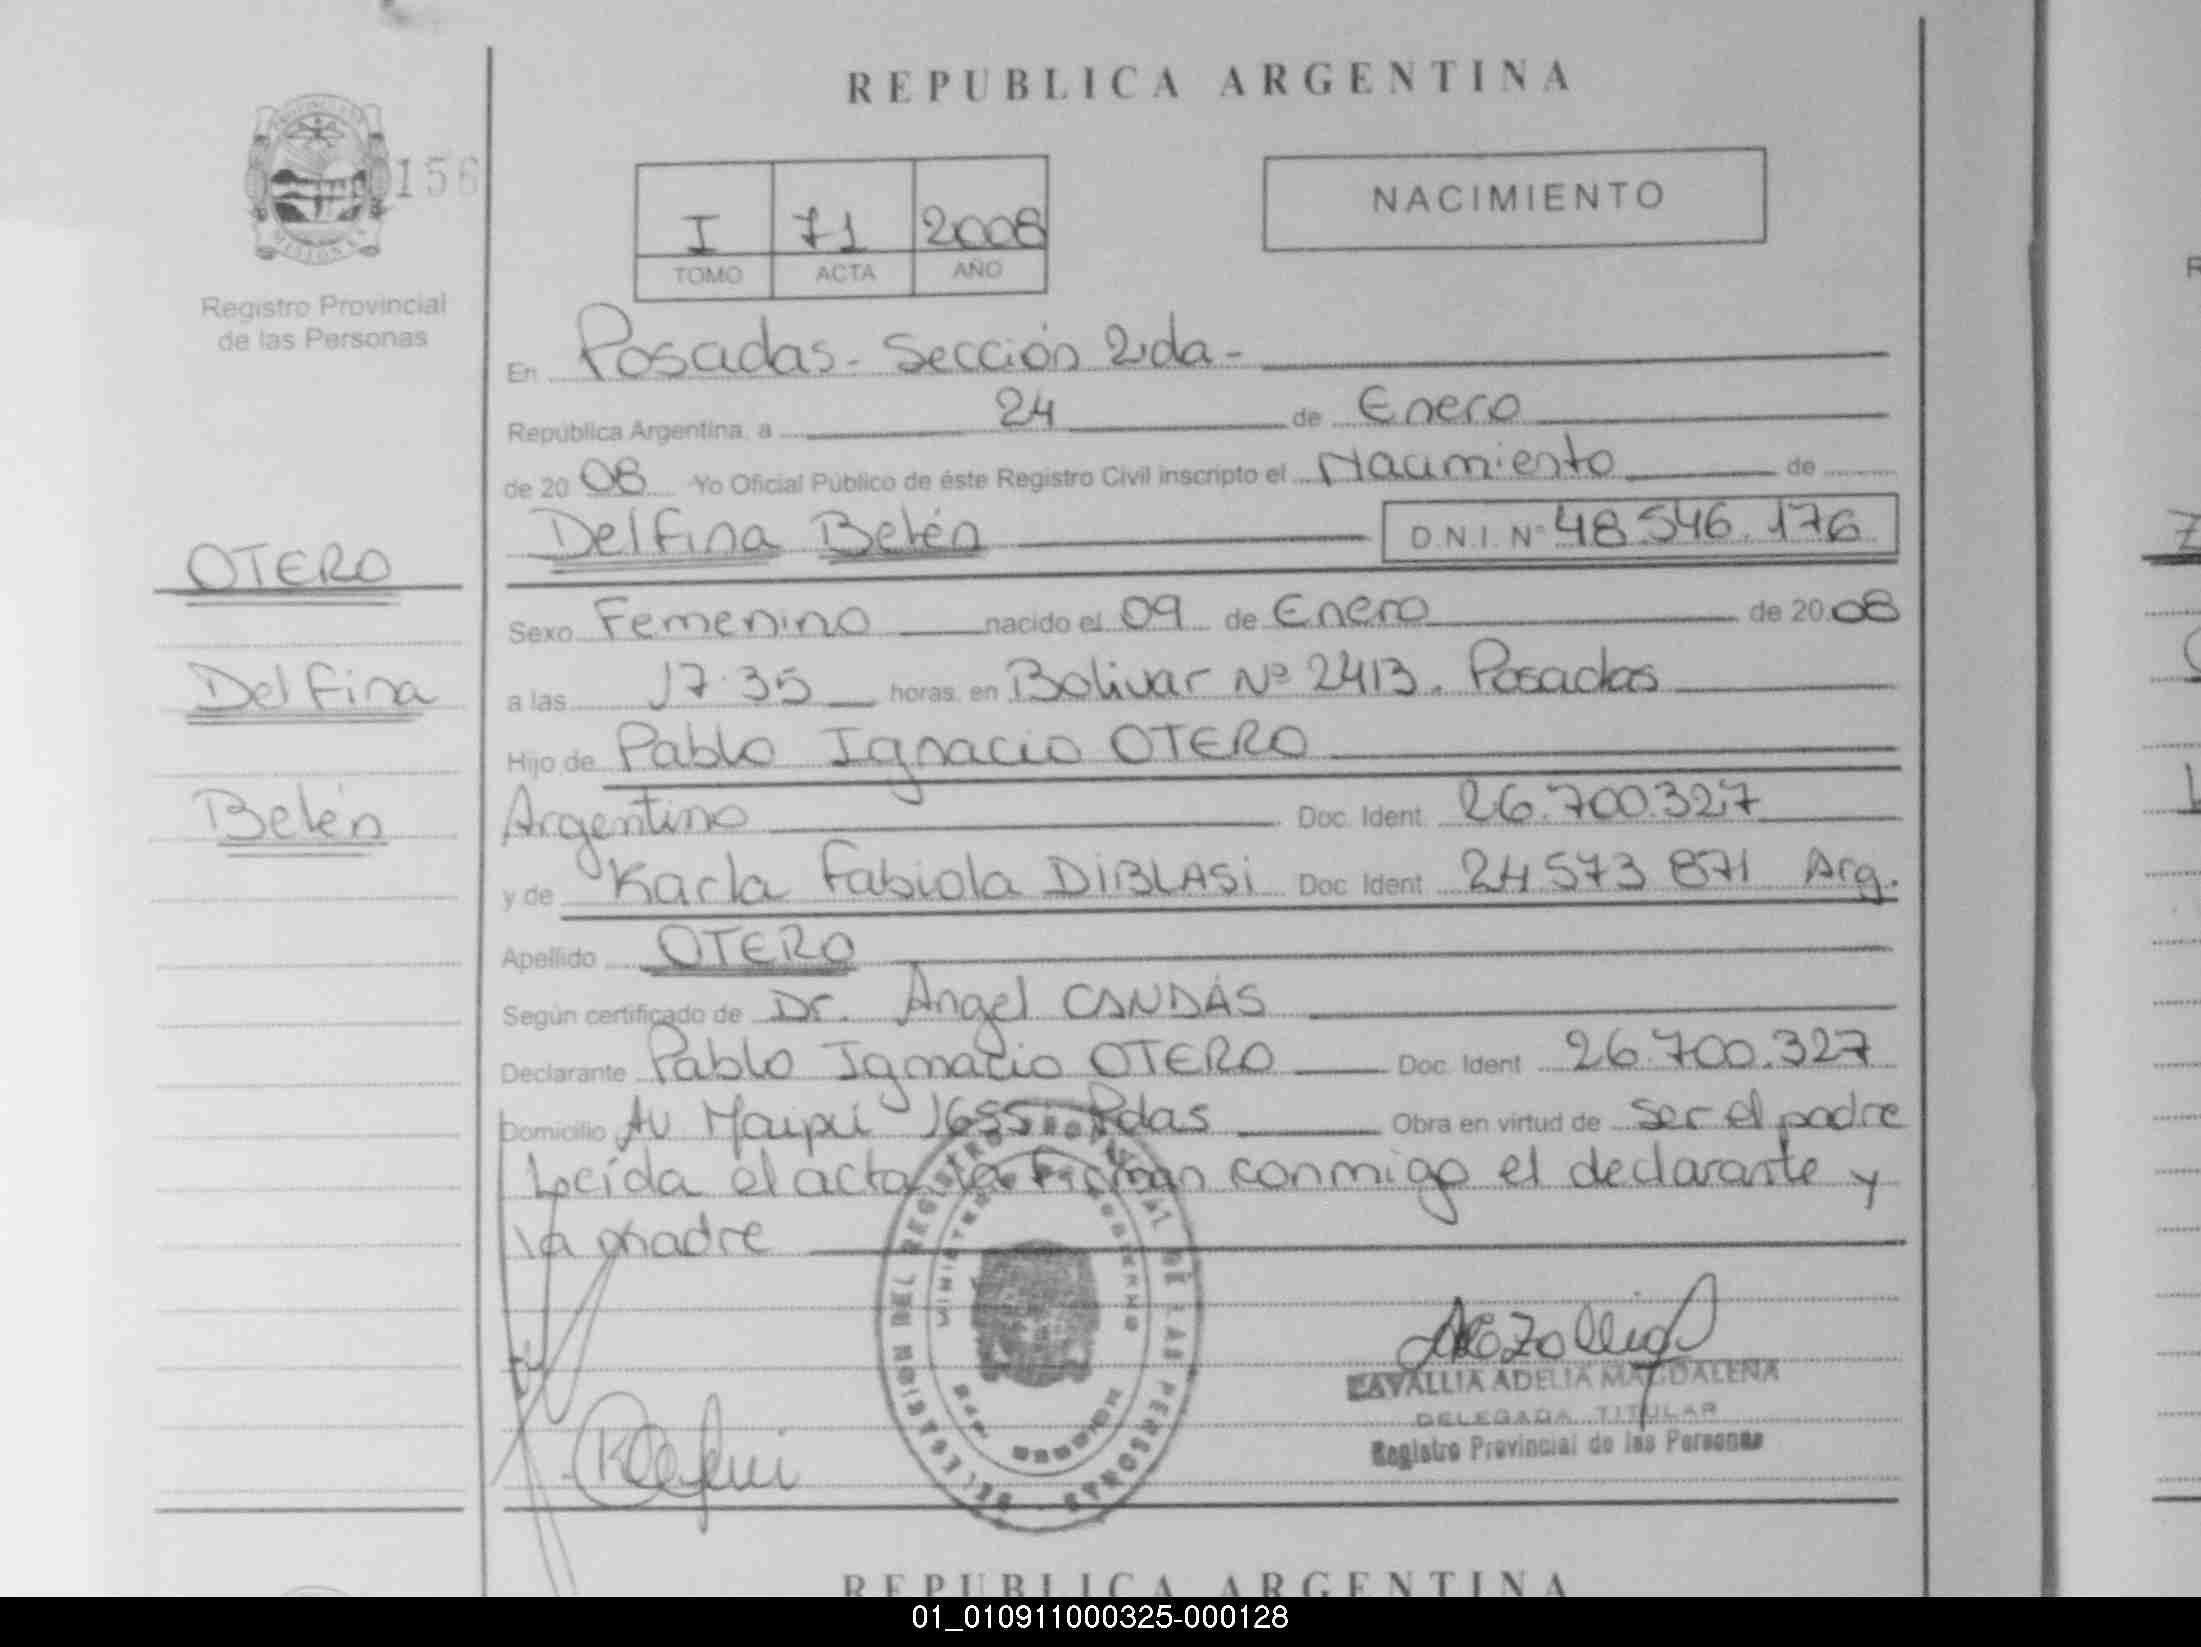 REPUBLICA ARGENTINA
156
NACIMIENTO
I 71 2008
TOMO ACTA AÑO
Registro Provincial
de las Personas
En Posadas - Sección 2da -
República Argentina, a 24 de Enero
de 20 08 Yo Oficial Público de éste Registro Civil inscripto el Nacimiento de
Delfina Belén D.N.I. Nº 48.546.176
OTERO
Sexo Femenino nacido el 09 de Enero de 20 08
Delfina
a las 17.35 horas, en Bolivar Nº 2413. Posadas
Hijo de Pablo Ignacio OTERO
Belén
Argentino Doc. Ident. 26.700.327
y de Karla Fabiola DIBLASI Doc. Ident. 24 573 871 Arg.
Apellido OTERO
Según certificado de Dr. Ángel CANDÁS
Declarante Pablo Ignacio OTERO Doc. Ident. 26.700.327
Domicilio Av Maipú 1655 Pdas Obra en virtud de ser el padre
Leída el acta la Firman conmigo el declarante y
la madre
DELEGACION DEL REGISTRO PROVINCIAL DE LAS PERSONAS
ZAVALLIA ADELIA MAGDALENA
DELEGADA TITULAR
Registro Provincial de las Personas
REPUBLICA ARGENTINA
01_010911000325-000128